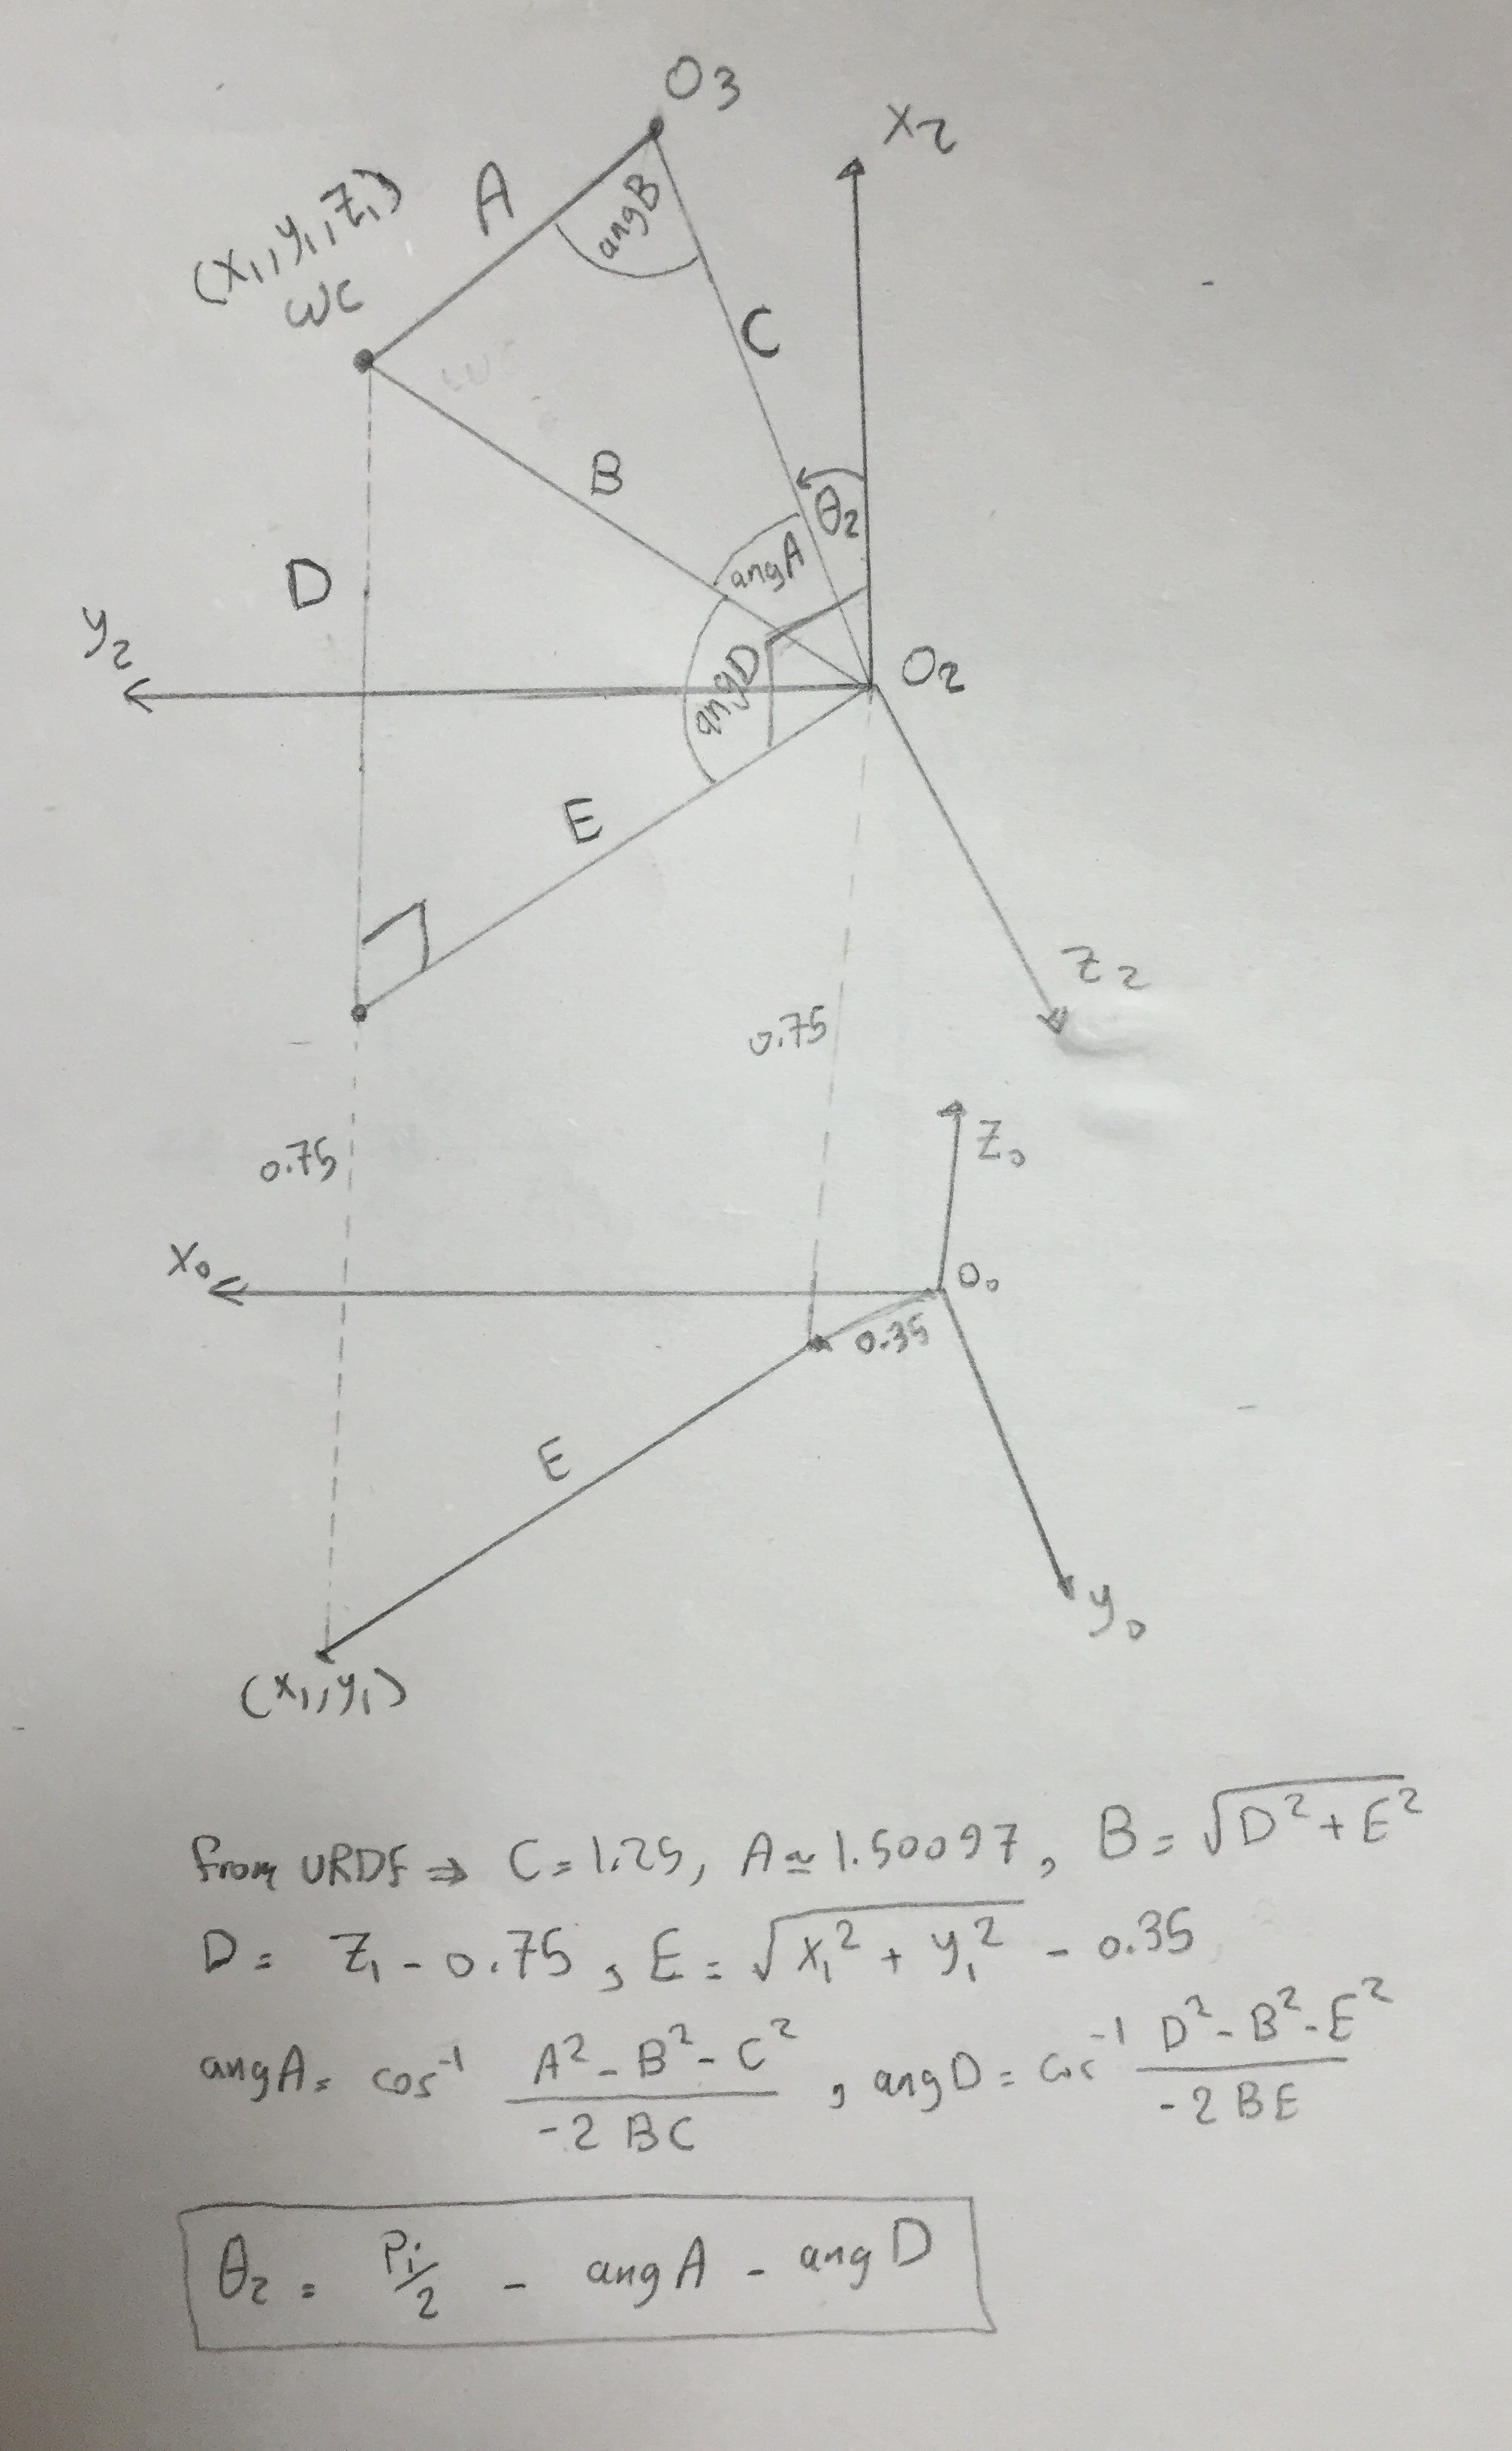 O3
X2
(x1,y1,z1)
WC
A
angB
C
B
θ2
angA
D
y2
angD
O2
E
Z2
0.75
0.75
Z0
X0
O0
0.35
E
y0
(x1,y1)
from URDF ⇒ C = 1.25, A ≃ 1.50097, B = √(D²+E²)
D = Z1 - 0.75, E = √(x1² + y1²) - 0.35
angA = cos⁻¹ (A² - B² - C²)/(-2BC), angD = cos⁻¹ (D² - B² - E²)/(-2BE)
θ2 = Pi/2 - angA - angD